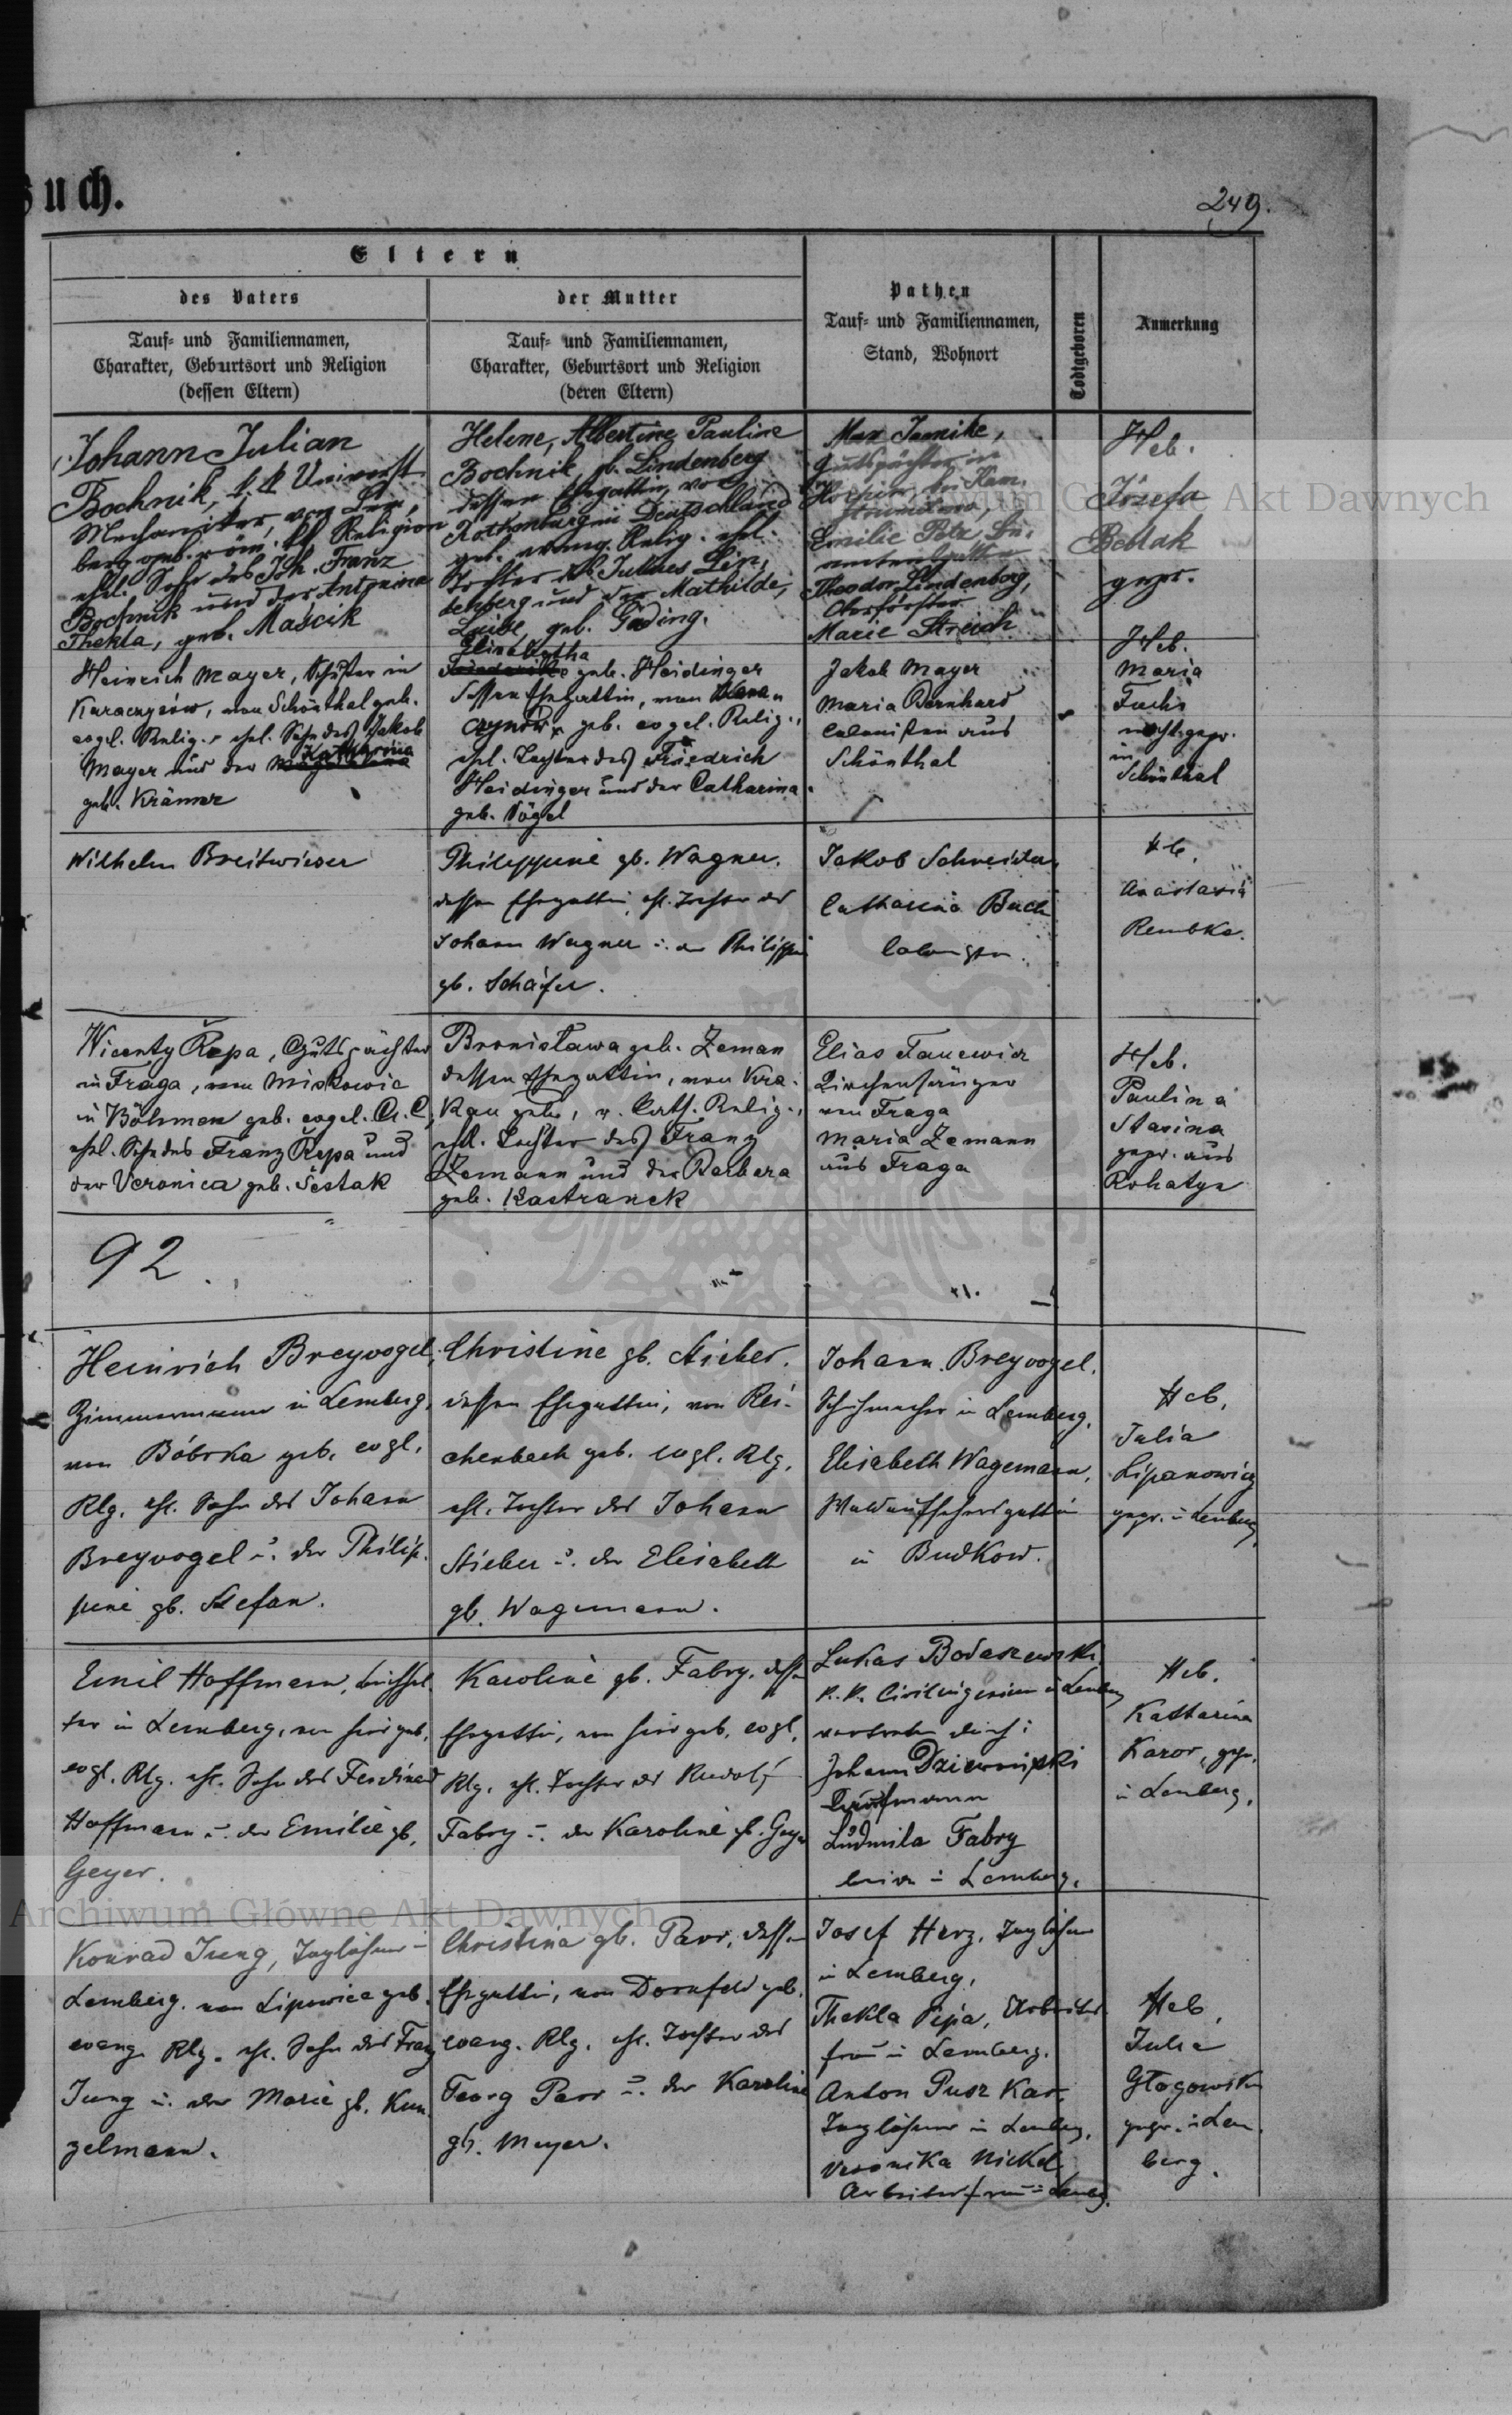 uch.
249.
Eltern
des Vaters
Tauf- und Familiennamen,
Charakter, Geburtsort und Religion
(dessen Eltern)
der Mutter
Tauf- und Familiennamen,
Charakter, Geburtsort und Religion
(deren Eltern)
Pathen
Tauf- und Familiennamen,
Stand, Wohnort
Todtgeboren
Anmerkung
Johann Julian
Bochnik, k. k. Universit.
Mechaniker, von Lem,
berg geb. röm. kth. Religion
ehel. Sohn des Joh. Franz
Bochnik und der Antonina
Thekla, geb. Maścik
Helene, Albertine Pauline
Bochnik, gb. Lindenberg
dessen Ehegattin, von
Rothenburg in Deutschland
geb. evang. Relig. ehel.
Tochter des Julius Lin,
denberg und der Mathilde,
Luise, geb. Gäding.
Max Jamike,
Gutspächter in
bei Kam.
Emilie
Theodor Lindenberg,
Oberförster
Marie Streich
Heb.
Józefa
Bedlak
gepr.
Heinrich Mayer, in
von Schönthal geb.
evgel. Relig., ehel. Sohn des Jakob
Mayer und der Katharina
geb. Krämer
Elisabetha
Friederike geb. Heidinger
dessen Ehegattin, von
geb. evgel. Relig.,
ehel. Tochter des Friedrich
Heidinger und der Catharina
geb. Vögel
Jakob Mayer
Maria Bernhard
Colonisten aus
Schönthal
Heb.
Maria
Fuchs
nicht gepr.
in
Schönthal
Wilhelm Breitwieser
Philippine gb. Wagner.
dessen Ehegattin, ehl. Tochter des
Johann Wagner u. der Philippi
gb. Schäfer.
Jakob Schneider,
Catharina Bach
Heb.
Anastasia
Rembka.
Wicenty Řepa, Gutspächter
in Fraga, von Miskowic
in Böhmen geb. evgel. A. C,
ehel. Sohn des Franz Řepa und
der Veronica geb. Šestak
Bronisława geb. Zeman
dessen Ehegattin, von Kra-
kau geb., r. Cath. Relig.,
ehl. Tochter des Franz
Zemann und der Barbara
geb. Kastranek
Elias Fanewicz
Kirchensänger
von Fraga
Maria Zemann
aus Fraga
Heb.
Paulina
Stasina
gepr. aus
Rohatyn
92.
Heinrich Breyvogel,
Zimmermann in Lemberg,
von Bóbrka geb. evgl.
Rlg. ehl. Sohn des Johann
Breyvogel u. der Philip-
pine gb. Stefan.
Christine gb. Stieber.
dessen Ehegattin, von Rei-
chenbach geb. evgl. Rlg.
ehl. Tochter des Johann
Stieber u. der Elisabeth
gb. Wagemann.
Johann Breyvogel.
Schuhmacher in Lemberg.
Elisabeth Wagemann,
Waldaufsehersgattin
in Budkow.
Heb.
Julia
Lipanowicz
gepr. in Lemberg
Emil Hoffmann,
in Lemberg, von hier geb.
evgl. Rlg. ehl. Sohn des Ferdinand
Hoffmann u. der Emilie gb.
Geyer.
Karoline gb. Fabry, dessen
Ehegattin, von hier geb. evgl.
Rlg. ehl. Tochter des Rudolf
Fabry u. der Karoline gb. Geyer
Lukas Bodaszewski
k. k. Civilingenieur in Lemberg
vertreten durch:
Johann
Kaufmann
Ludmila Fabry
in Lemberg.
Heb.
Katharina
Karor, gepr.
in Lemberg.
Konrad Jung, Taglöhner in
Lemberg. von Lipowice geb.
evang. Rlg. ehl. Sohn des Franz
Jung u. der Marie gb. Kun
zelmann.
Christina gb. Parr, dessen
Ehegattin, von Dornfeld geb.
evang. Rlg. ehl. Tochter des
Georg Parr u. der Karoline
gb. Meyer.
Josef Herz, Taglöhner
in Lemberg.
Thekla Pipa, Arbeiters
frau in Lemberg.
Anton Pusz Kar.
Taglöhner in Lemberg.
Veronika Nickel
Arbeitersfrau in Lembg.
Heb.
Julie
Głogowska
gepr. in Lem
berg.
Archiwum Główne Akt Dawnych
Archiwum Główne Akt Dawnych